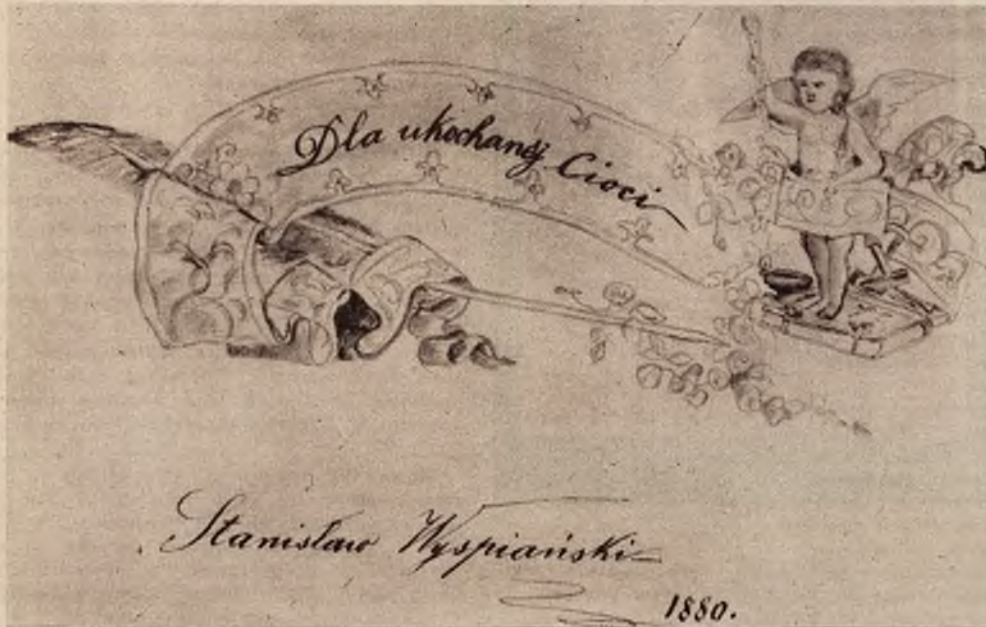 Dla ukochanéj Cioci
Stanisław Wyspiański
1880.